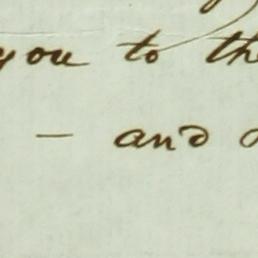 you to the
— and